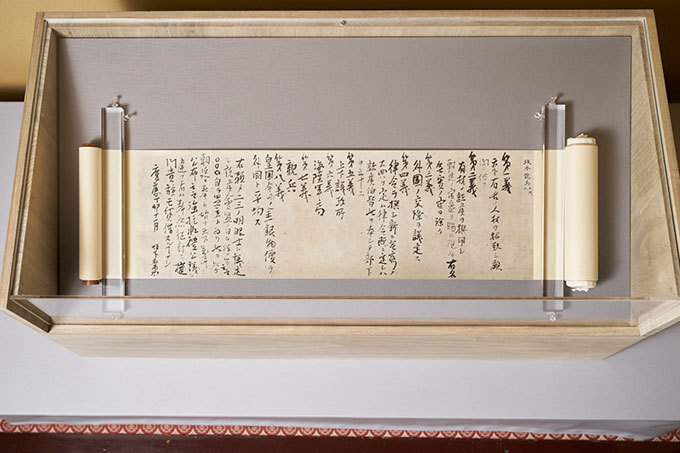 坂本龍馬
第一義
天下有名ノ人材ヲ招致シ顧
問ニ供フ
第二義
有材ノ諸侯ヲ撰用シ
朝廷ノ官爵ヲ賜ヒ現今有名
無実ノ官ヲ除ク
第三義
外国ノ交際ヲ議定ス
第四義
律令ヲ撰シ新ニ無窮ノ
大典ヲ定ム律令既ニ定レハ
諸侯伯皆此ヲ奉シテ部下
ヲ率ユ
第五義
上下議政所
第六義
海陸軍局
第七義
親兵
第八義
皇国今日ノ金銀物価ヲ
外国ト平均ス
右預メ二三ノ明眼士ト議定
シ諸侯会盟ノ日ヲ待ツテ云云
○○○自ラ盟主ト為リ此ヲ以テ
朝廷ニ奉リ始テ天下万民ニ
公布云云強抗非礼公議ニ
違フ者ハ断然征討ス権
門貴族モ貸借スルコトナシ
慶応丁卯十一月 坂本直柔